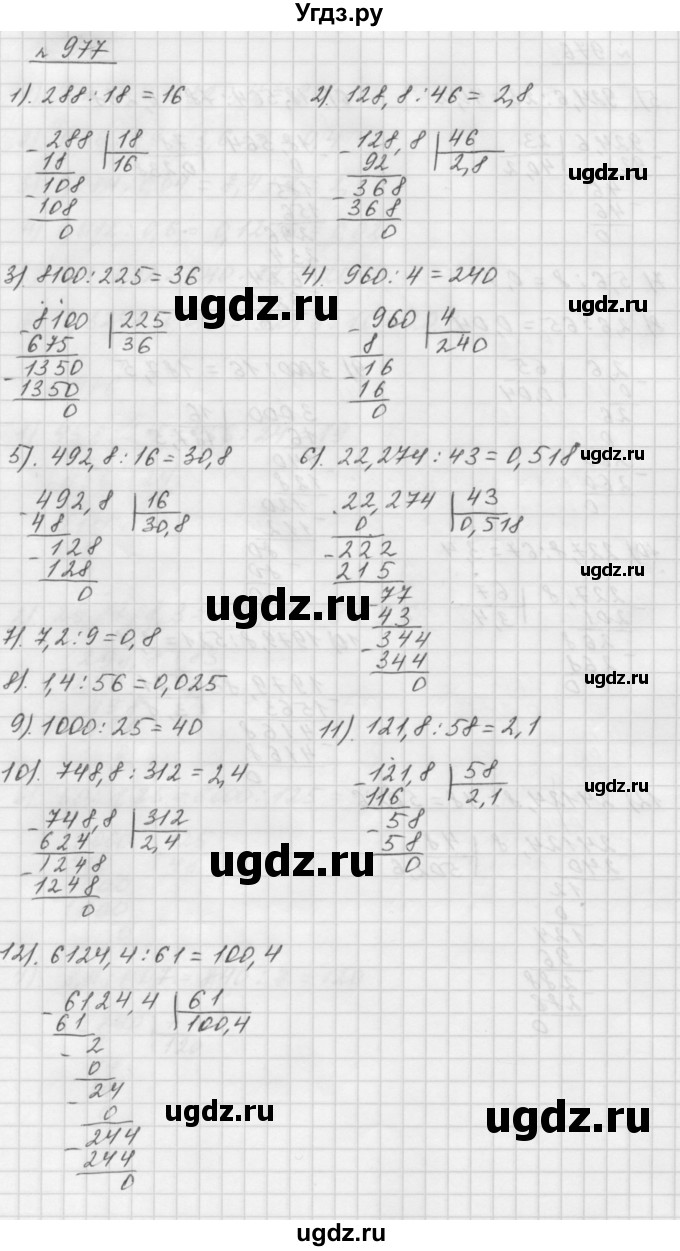 Угдз.ру
№ 977
1). 288 : 18 = 16
2). 128,8 : 46 = 2,8
-288 | 18
18 | 16
-108
108
0
-128,8 | 46
92 | 2,8
-368
368
0
ugdz.ru
3). 8100 : 225 = 36
4). 960 : 4 = 240
ugdz.ru
ugdz.ru
-8100 | 225
675 | 36
-1350
1350
0
-960 | 4
8 | 240
-16
16
0
5). 492,8 : 16 = 30,8
6). 22,274 : 43 = 0,518
ugdz.ru
-492,8 | 16
48 | 30,8
-128
128
0
22,274 | 43
0 | 0,518
-222
215
-77
43
-344
344
0
ugdz.ru
ugdz.ru
7). 7,2 : 9 = 0,8
8). 1,4 : 56 = 0,025
ugdz.ru
9). 1000 : 25 = 40
11). 121,8 : 58 = 2,1
10). 748,8 : 312 = 2,4
-121,8 | 58
116 | 2,1
-58
58
0
ugdz.ru
-748,8 | 312
624 | 2,4
-1248
1248
0
ugdz.ru
ugdz.ru
12). 6124,4 : 61 = 100,4
-6124,4 | 61
61 | 100,4
-2
0
-24
0
-244
244
0
ugdz.ru
ugdz.ru
ugdz.ru